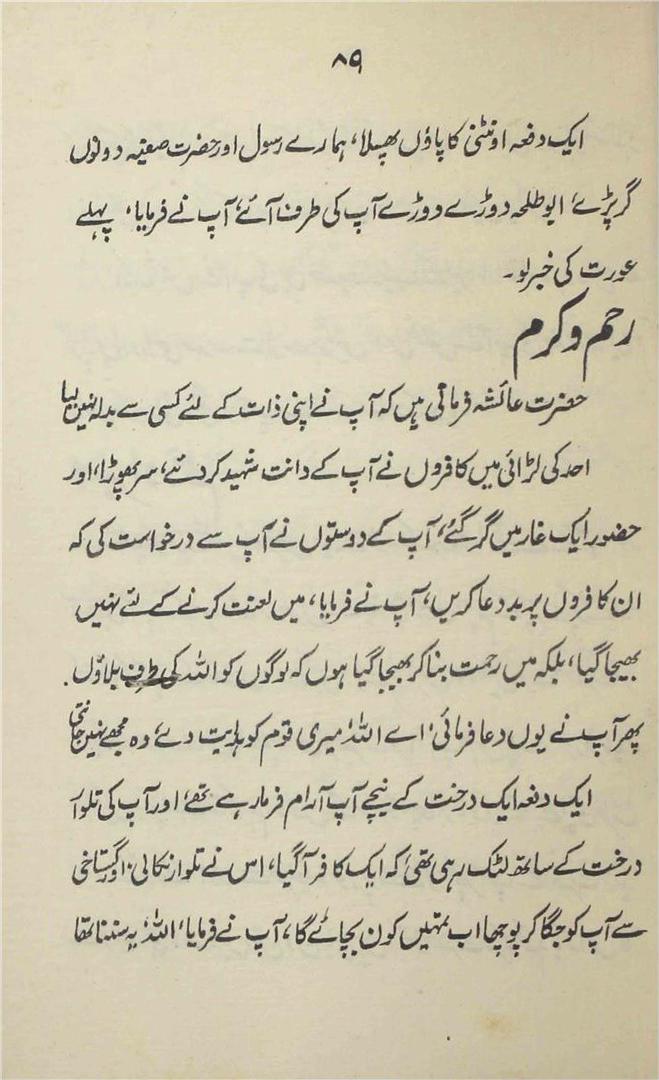 ۸۹
ایک دفعہ اونٹنی کا پاؤں پھسلا، ہمارے رسول اور حضرت صفیہ دونوں
گر پڑے، ابوطلحہ دوڑے دوڑے آپ کی طرف آئے، آپ نے فرمایا، پہلے
عورت کی خبر لو۔
رحم و کرم
حضرت عائشہ فرماتی ہیں کہ آپ نے اپنی ذات کے لئے کسی سے بدلہ نہیں لیا
احد کی لڑائی میں کافروں نے آپ کے دانت شہید کردئے، سر پھوڑا، اور
حضور ایک غار میں گر گئے، آپ کے دوستوں نے آپ سے درخواست کی کہ
ان کافروں پر بددعا کریں، آپ نے فرمایا، میں لعنت کرنے کے لئے نہیں
بھیجا گیا، بلکہ میں رحمت بنا کر بھیجا گیا ہوں کہ لوگوں کو اللہ کی طرف بلاؤں۔
پھر آپ نے یوں دعا فرمائی، اے اللہ، میری قوم کو ہدایت دے، وہ مجھے نہیں جانتی
ایک دفعہ ایک درخت کے نیچے آپ آرام فرما رہے تھے، اور آپ کی تلوار
درخت کے ساتھ لٹک رہی تھی، کہ ایک کافر آگیا، اس نے تلوار نکالی، اور گستاخی
سے آپ کو جگا کر پوچھا اب تمہیں کون بچائے گا، آپ نے فرمایا، اللہ، یہ سننا تھا